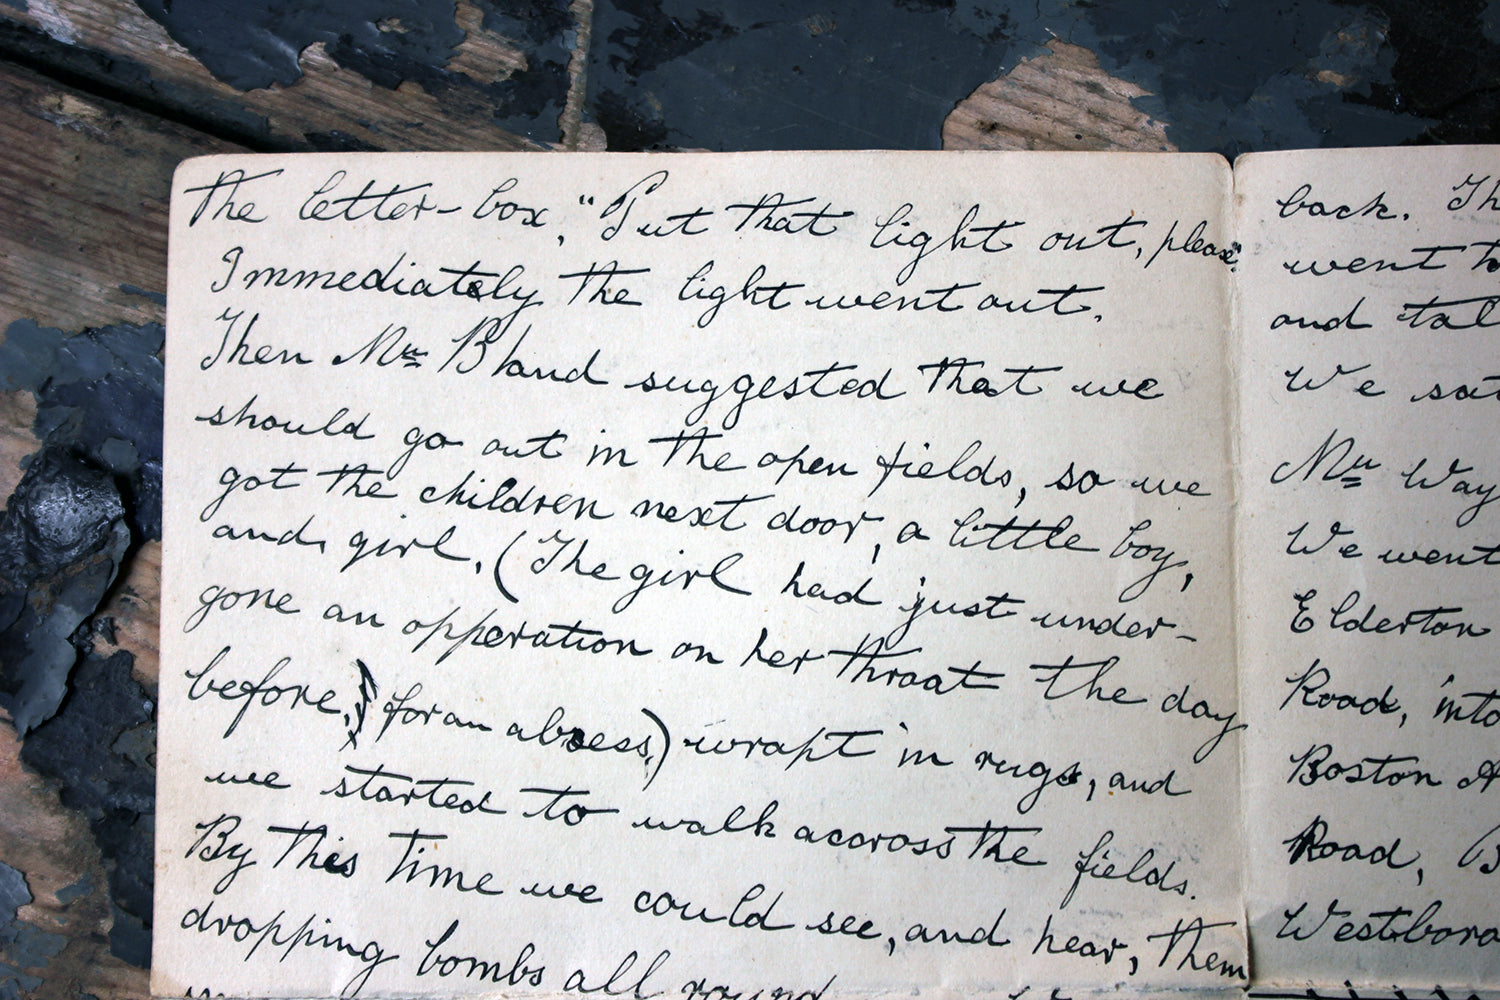 the letter-box, "Put that light out, please".
Immediately the light went out.
Then Mrs Bland suggested that we
should go out in the open fields, so we
got the children next door, a little boy,
and girl. (The girl had just under-
gone an opperation on her throat the day
before, for an abscess,) wrapt in rugs, and
we started to walk accross the fields.
By this time we could see, and hear, them
dropping bombs all round
back. Th
went to
and tal
We sat
Mrs Way
We went
Elderton
Road, into
Boston A
Road, B
Westboro